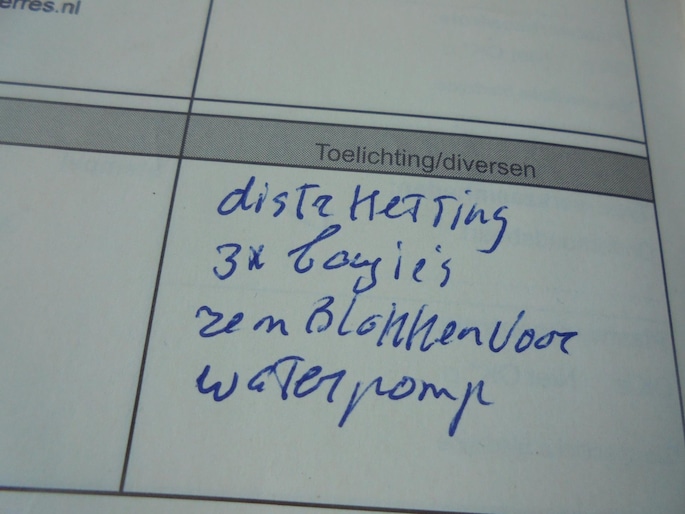 erres.nl
Toelichting/diversen
distr Ketting
3x bougie's
remBlokken Voor
waterpomp